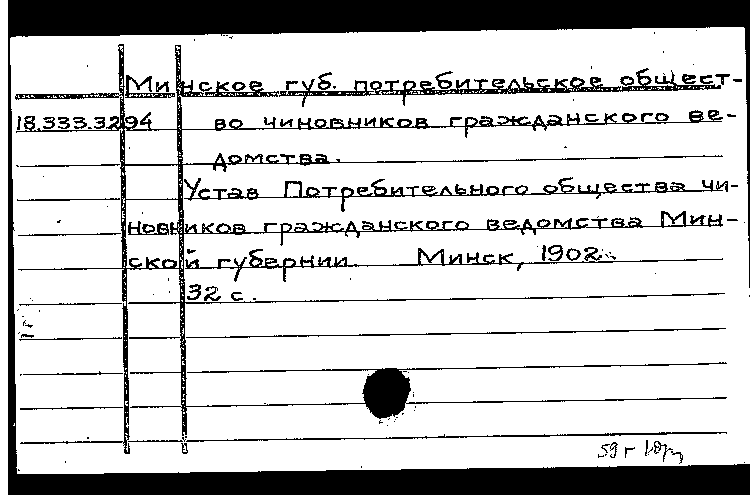 Минское губ. потребительское общест-
18.333.3294 во чиновников гражданского ве-
домства.
Устав Потребительного общества чи-
новников гражданского ведомства Мин-
ской губернии. Минск, 1902.
32 с.
59 г